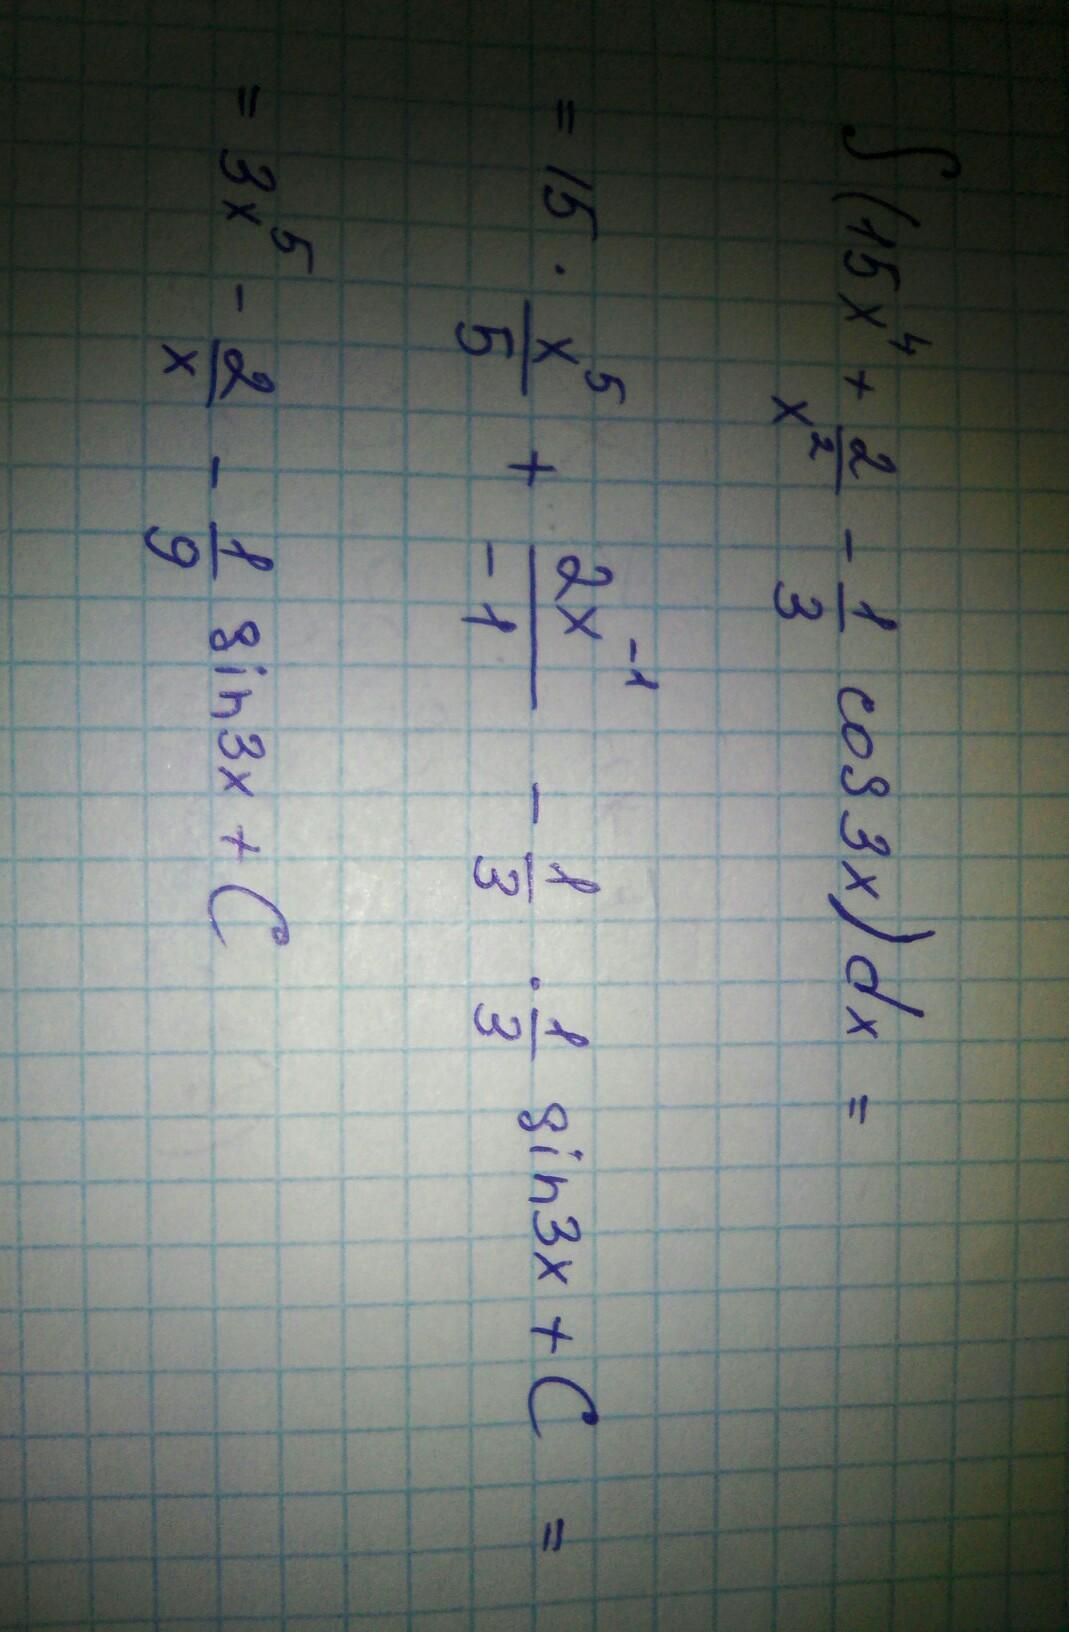 ∫(15x⁴ + 2/x² - 1/3 cos3x)dx =
= 15 · x⁵/5 + 2x⁻¹/-1 - 1/3 · 1/3 sin3x + C =
= 3x⁵ - 2/x - 1/9 sin3x + C